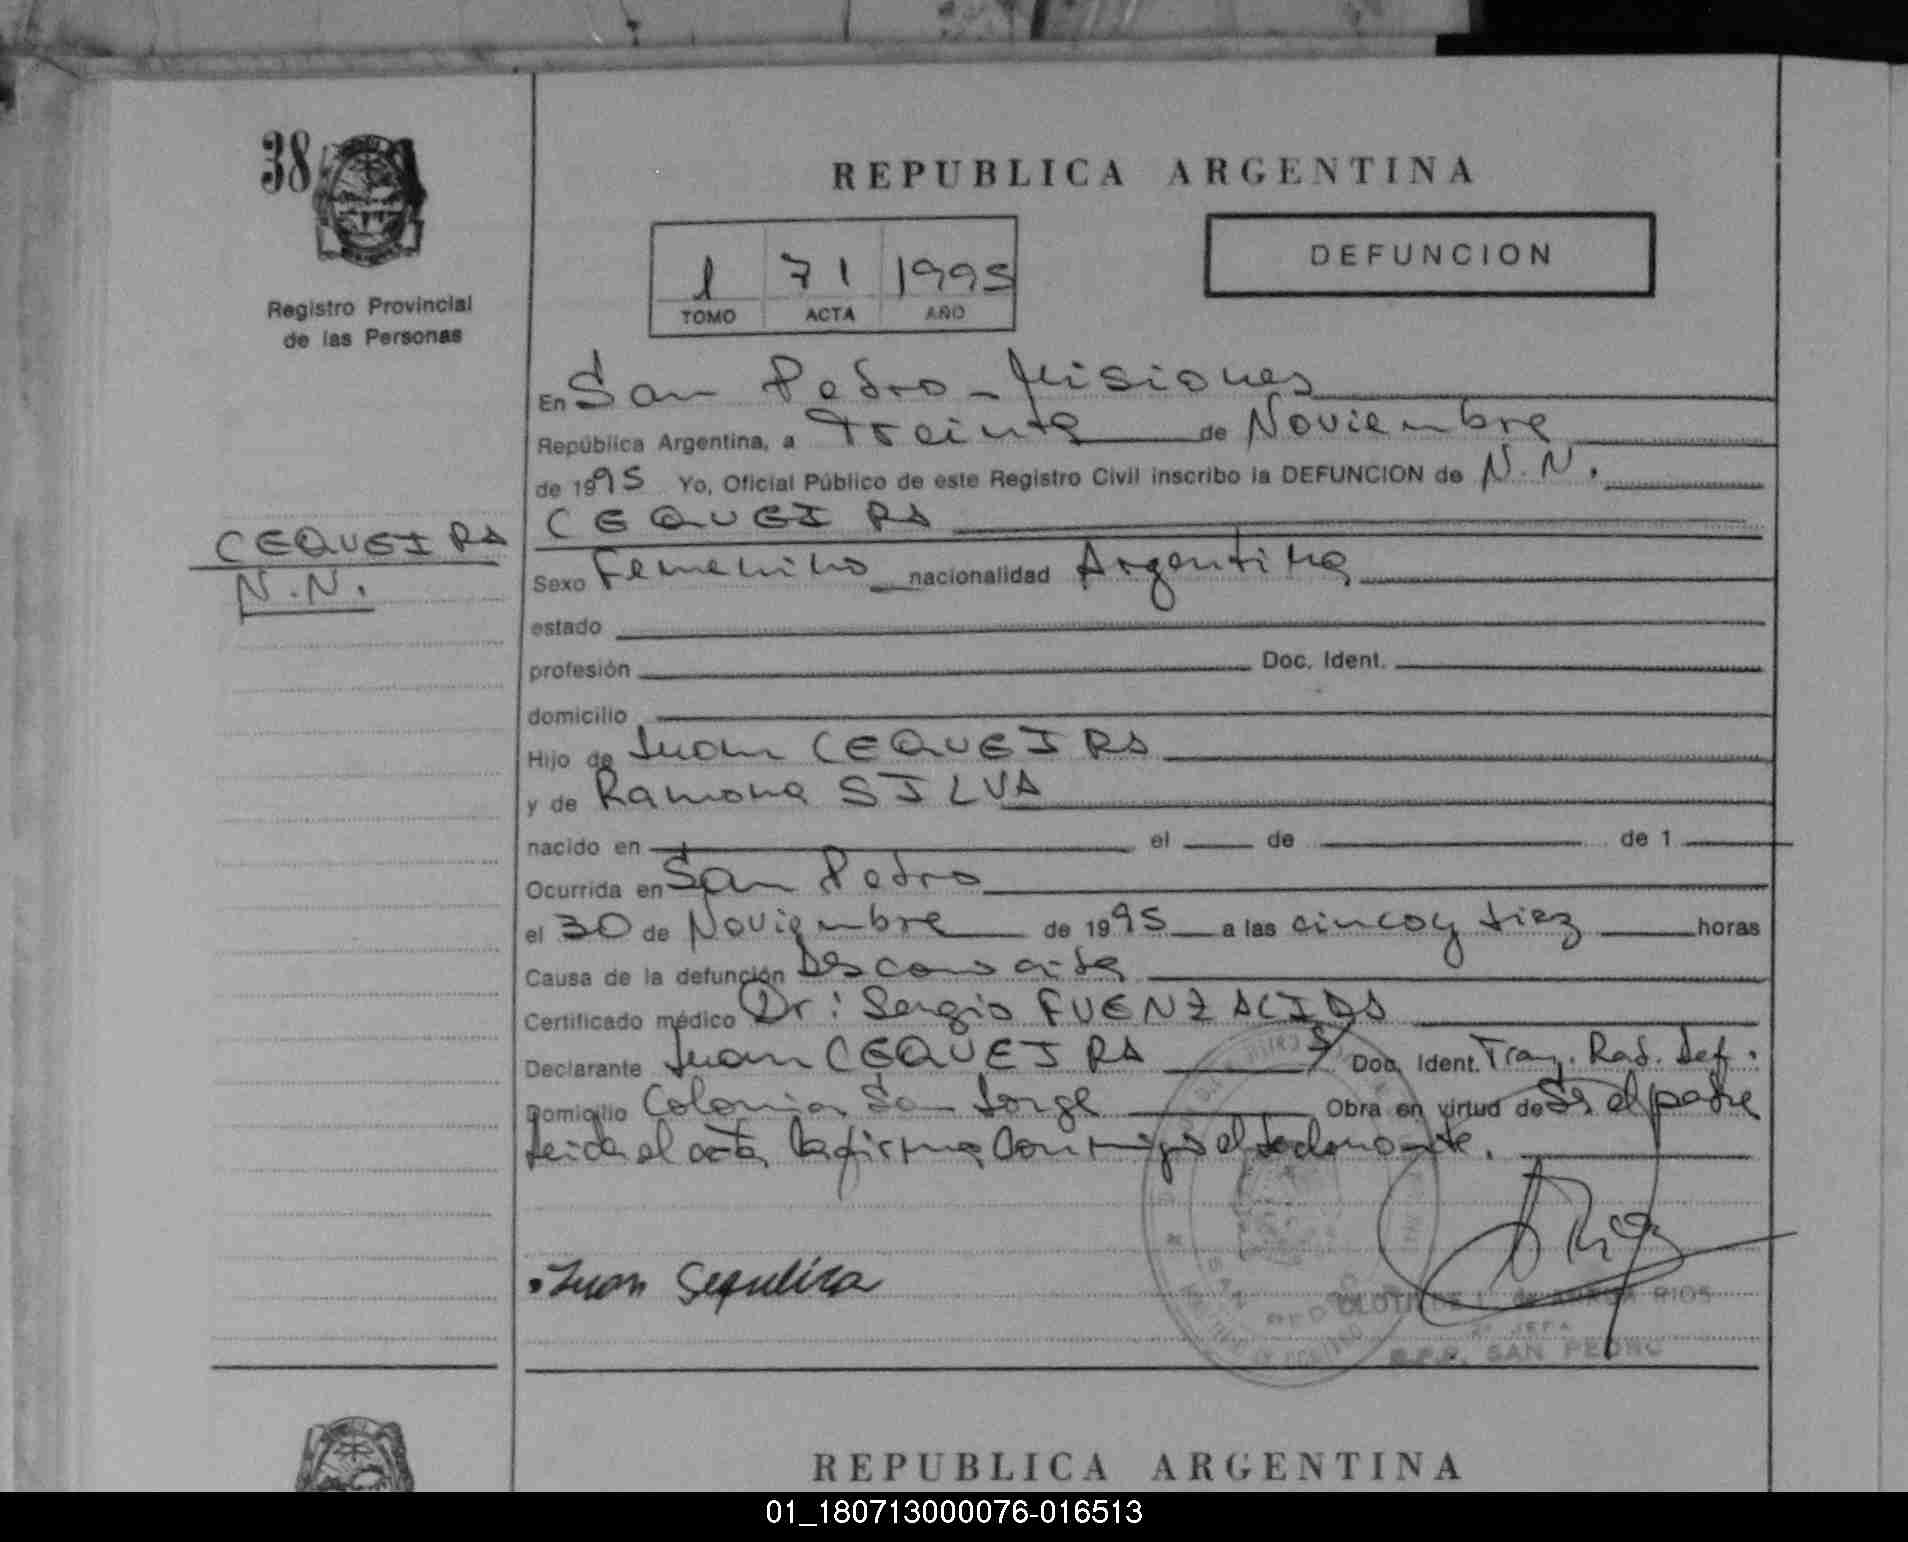 38
Registro Provincial
de las Personas
REPUBLICA ARGENTINA
DEFUNCION
1 71 1995
TOMO ACTA AÑO
En San Pedro - Misiones
República Argentina, a Treinta de Noviembre
de 1995 Yo, Oficial Público de este Registro Civil inscribo la DEFUNCION de N.N.
CEQUEIRA
CEQUEIRA
N.N.
Sexo Femenino nacionalidad Argentina
estado
profesión Doc. Ident.
domicilio
Hijo de Juan CEQUEIRA
y de Ramona SILVA
nacido en el de de 1
Ocurrida en San Pedro
el 30 de Noviembre de 1995 a las cinco y diez horas
Causa de la defunción
Certificado médico Dr: Sergio FUENZALIDA
Declarante Juan CEQUEIRA Doc. Ident. Tram. Rad. Def.
Domicilio Colonia San Jorge Obra en virtud de Ser el padre
Leida el acta la firma conmigo el declarante.
Juan Sequeira
RIOS
JEFA
R.P.P. SAN PEDRO
SAN PEDRO
REPUBLICA ARGENTINA
01_180713000076-016513